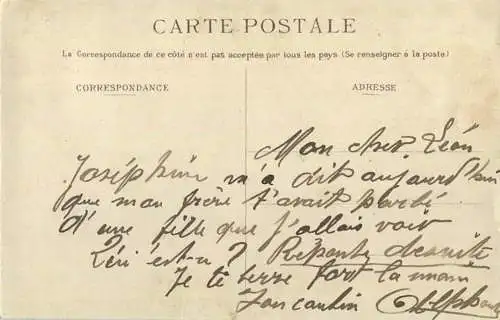 CARTE POSTALE
La Correspondance de ce côté n'est pas acceptée par tous les pays (Se renseigner à la poste)
CORRESPONDANCE
ADRESSE
Mon cher Léon
Joséphine m'a dit aujourd'hui
que mon frère t'avait parlé
d'une fille que j'allais voir
est-ce ? Réponse de suite
Je te serre fort la main
Ton Alphonse